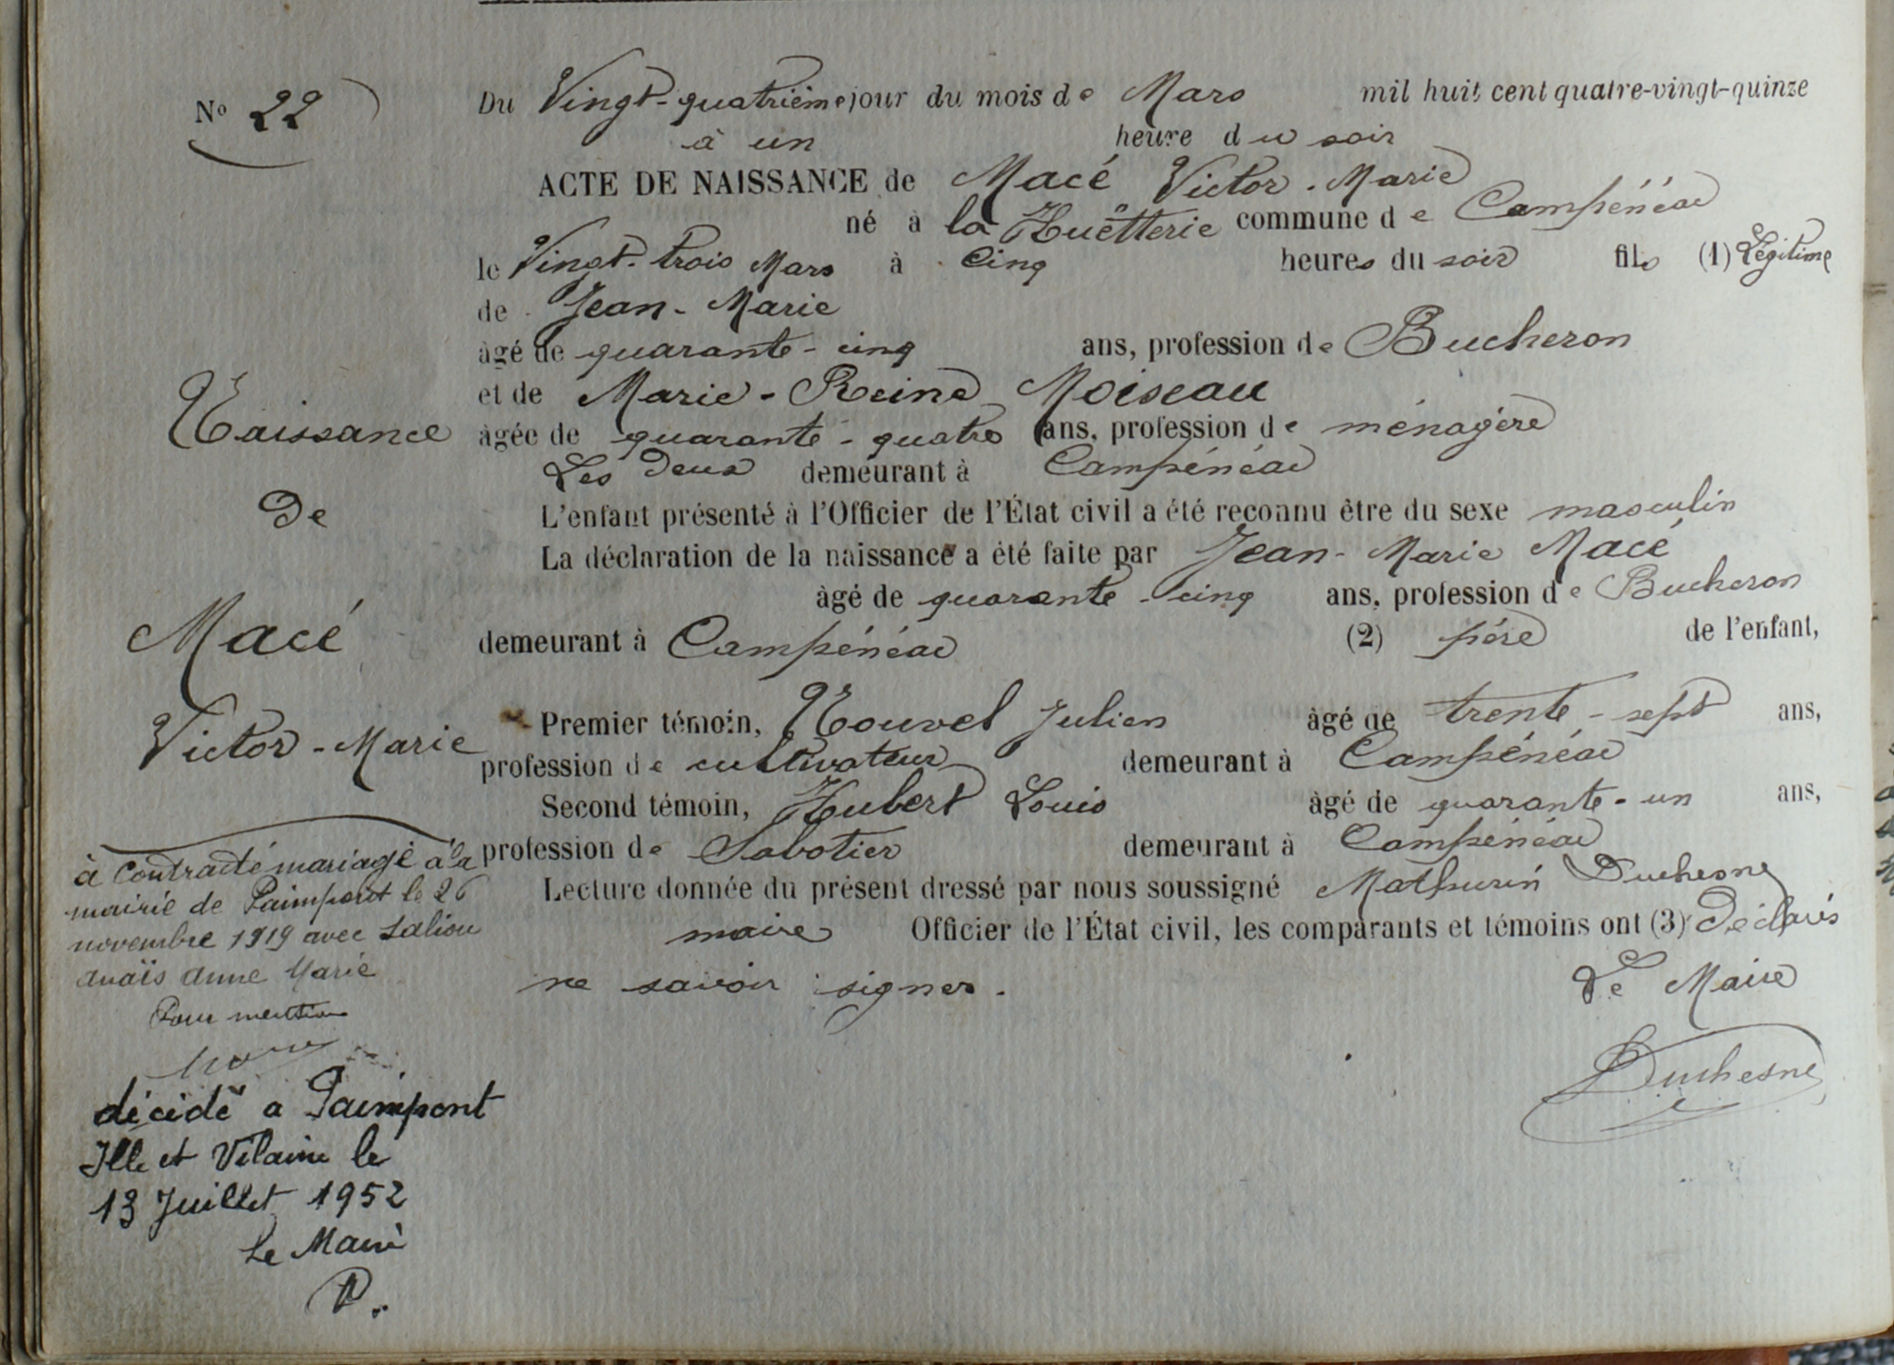 N° 22
Du Vingt-quatrième jour du mois de Mars mil huit cent quatre-vingt-quinze
à un heure du soir
ACTE DE NAISSANCE de Macé Victor-Marie
né à la Huëtterie commune de Campénéac
le Vingt-trois Mars à Cinq heures du soir fils (1) Légitime
de Jean-Marie
âgé de quarante-cinq ans, profession de Bucheron
et de Marie-Reine Moiseau
âgée de quarante-quatre ans, profession de ménagère
Les deux demeurant à Campénéac
L'enfant présenté à l'Officier de l'État civil a été reconnu être du sexe masculin
La déclaration de la naissance a été faite par Jean-Marie Macé
âgé de quarante-cinq ans, profession de Bucheron
demeurant à Campénéac (2) père de l'enfant,
Premier témoin, Nouvel Julien âgé de trente-sept ans,
profession de cultivateur demeurant à Campénéac
Second témoin, Hubert Louis âgé de quarante-un ans,
profession de Sabotier demeurant à Campénéac
Lecture donnée du présent dressé par nous soussigné Mathurin Duchesne
maire Officier de l'État civil, les comparants et témoins ont (3) Déclarés
ne savoir signer.
Le Maire
Duchesne
Naissance
de
Macé
Victor-Marie
à contracté mariage à la
mairie de Paimpont le 26
novembre 1919 avec Saliou
Anaïs Anne Marie
Pour mention
décédé a Paimpont
Ille et Vilaine le
13 Juillet 1952
Le Maire